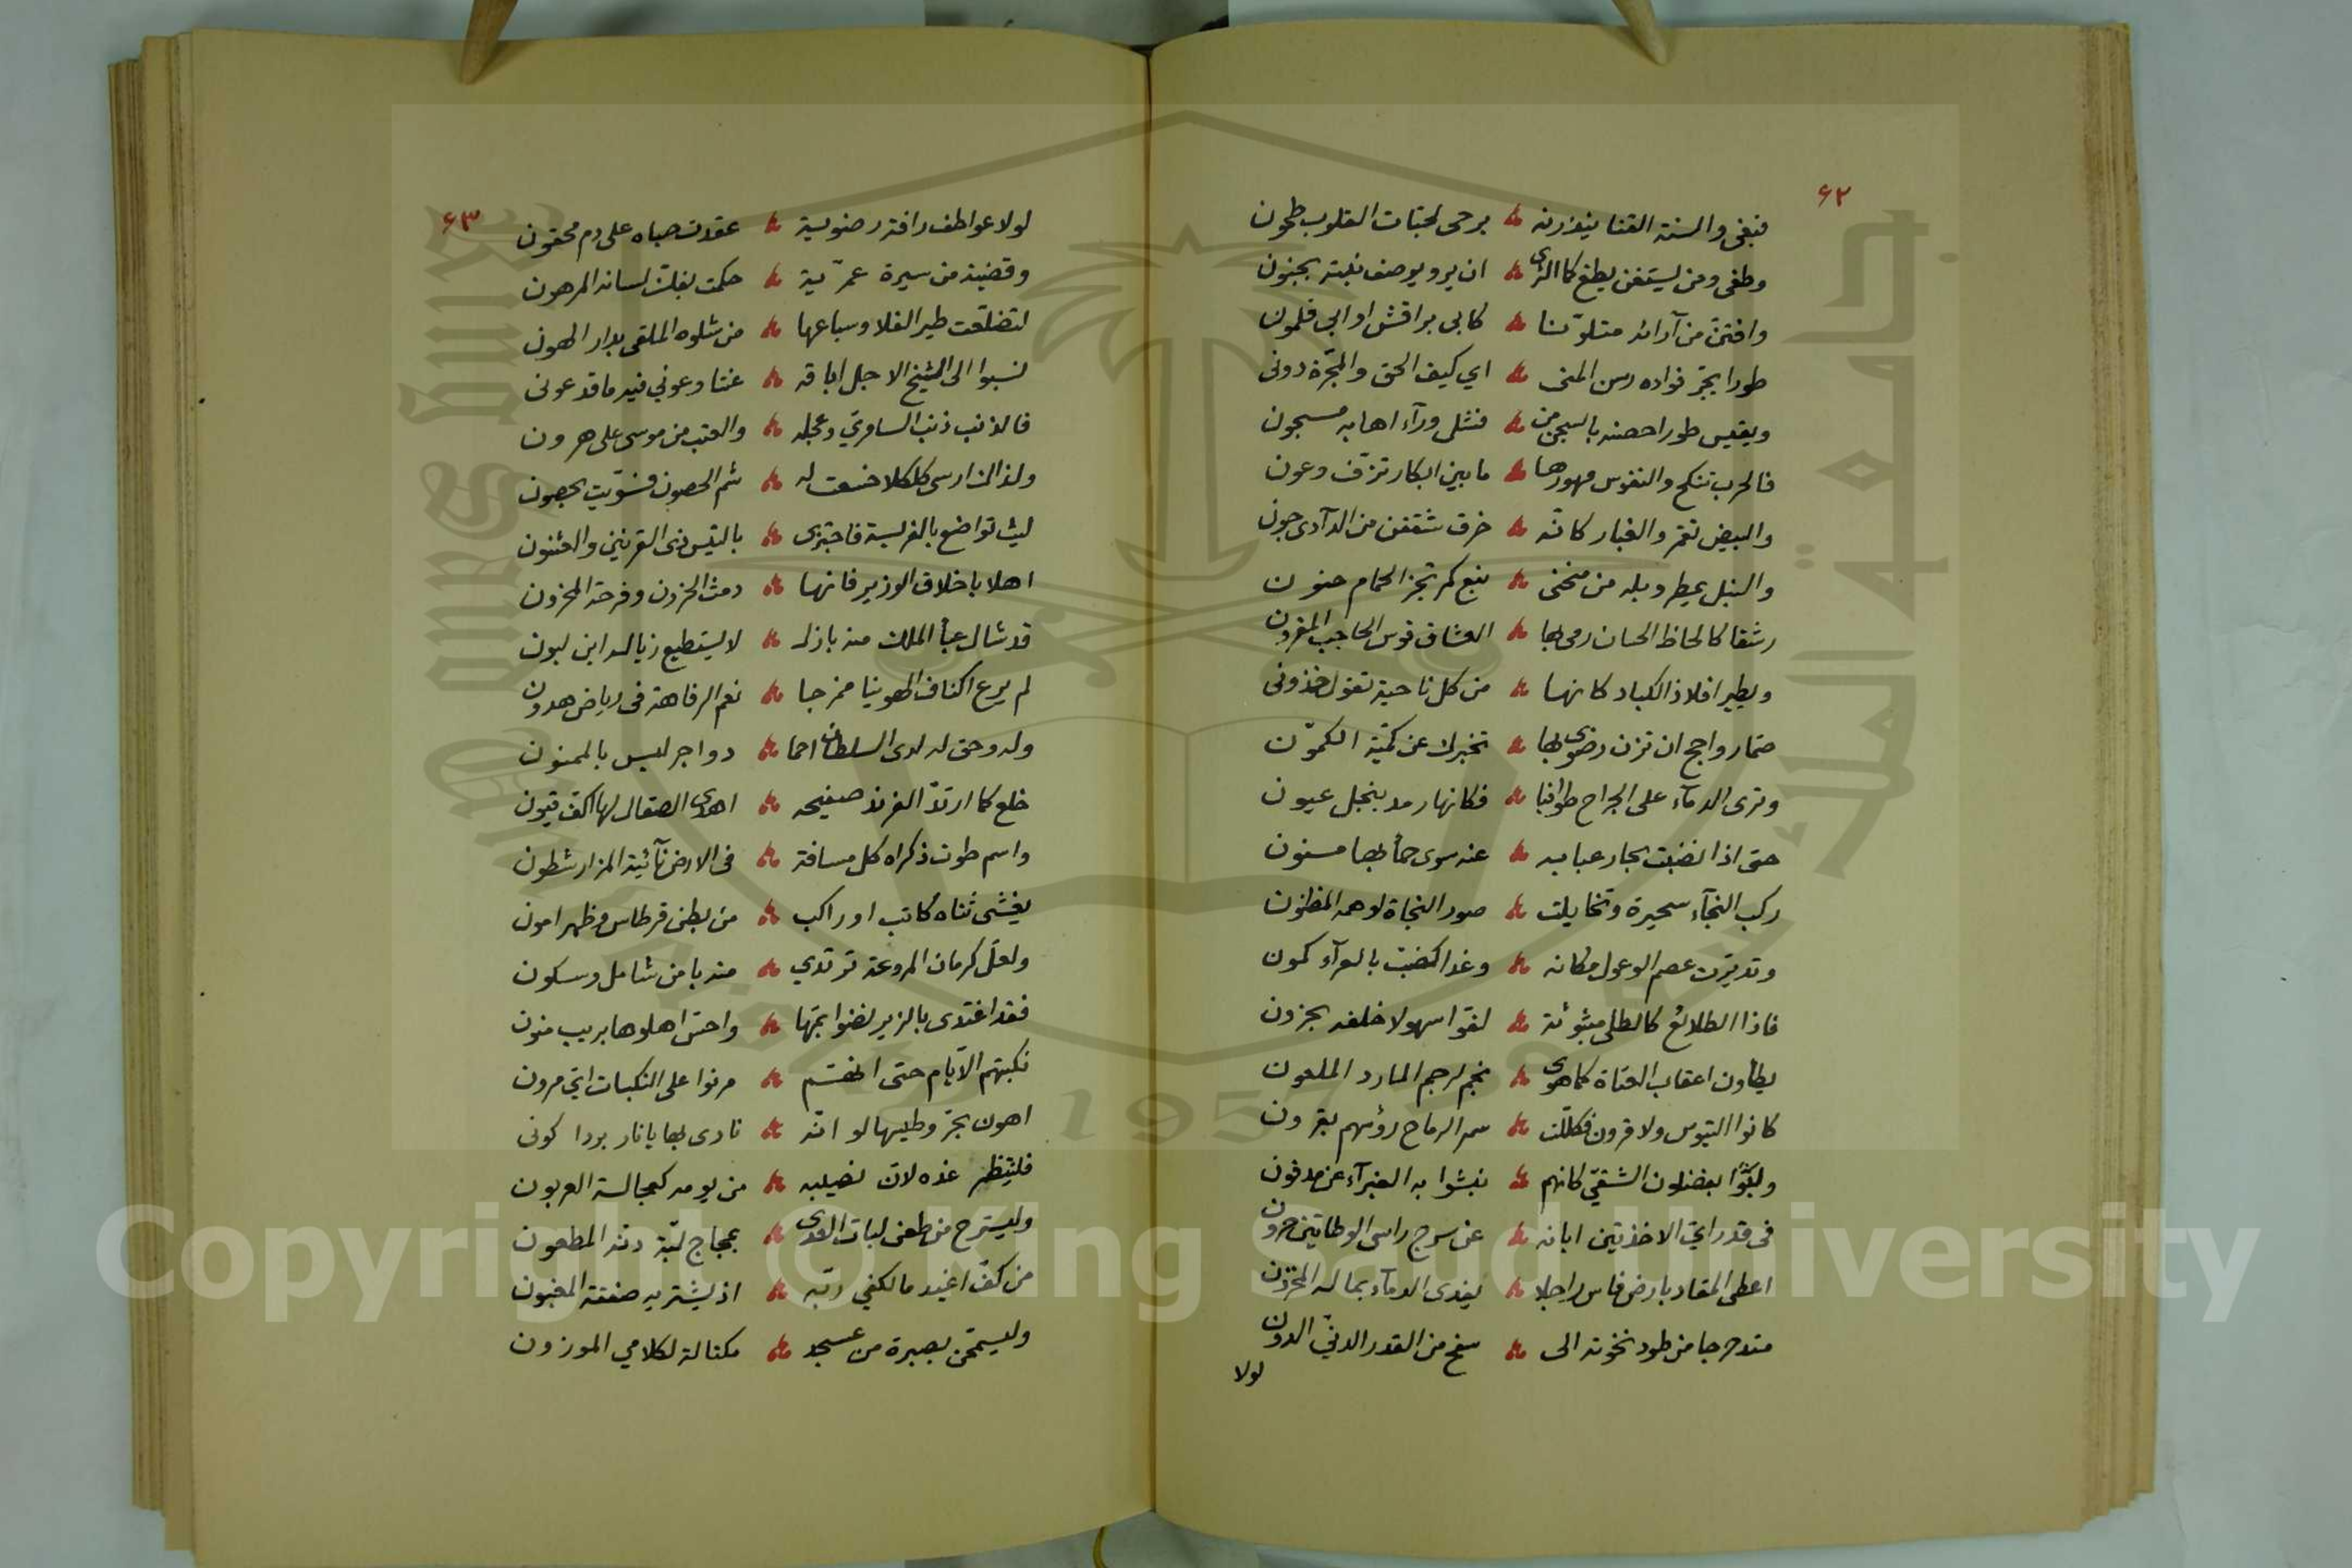 ٦٢
فبغى والسنة القنا ينذرنه برحى لحبات القلوب طحون
وطغى ومن يستغن يطغ كما الثرى ان يرو يوصف نبته بجنون
وافتن من آرائه متلونا كابي براقش او ابي قلمون
طورا يجر فواده رسن المنى اي كيف الحق والمجرة دوني
ويقيس طورا حصنه بالسجن من فشل ورآء اهابه مسجون
فالحرب تنكح والنفوس مهورها ما بين ابكار تزف وعون
والبيض تقمر والغبار كانه خرق شققن من الدآدى جون
والنبل يمطر وبله من منحنى نبع كمرتجز الحمام حنون
رشقا كالحاظ الحسان رمى بها العشاق قوس الحاجب المقرون
ويطير افلاذ الكباد كانها من كل ناحية تقول خذوني
صما رواجح ان تزن رضوى بها تخبرك عن كمية الكمون
وترى الدمآء على الجراح طوافيا فكانها رمد بنجل عيون
حتى اذا نضبت بحار عبابه عنه سوى حمأ بها مسنون
ركب النجآء سحيرة وتخايلت صور النجاة لوهمه المظنون
وتديرت عصم الوعول مكانه وغدا كضب بالعرآء كمون
فاذا الطلائع كالطلى مبثوثة لفوا سهولا خلفه بحزون
يطأون اعقاب العتاة كما هوى نجم لرجم المارد الملعون
كانوا التيوس ولا قرون فكللت سمر الرماح رؤسهم بقرون
ولبئوا بفضلون الشقي كانهم نبشوا به الغبرآء عن مدفون
في قد راي الاخذتين ابانه عن سرج راسى الوطأتين حرون
اعطى المقاد بارض فاس راجلا يفدى الدمآء بماله المخزون
متدحرجا من طود نخوته الى سفح من القدر الدني الدون
لولا
٦٣
لولا عواطف رافة رضوية عقدت حباه على دم محقون
وقضية من سيرة عمرية حكمت بفلت لسانه المرهون
لتضلعت طير الفلا وسباعها من شلوه الملقى بدار الهون
نسبوا الى الشيخ الاجل اباقه عنتا وعوني فيه ما قد عوني
فالذنب ذنب السامري وعجله والعتب من موسى على هرون
ولذا لئن ارسى كلكلا خشعت له شم الحصون فسويت بحصون
ليث تواضع بالفريسة فاجتزى بالتيس ذي القرنين والعثنون
اهلا باخلاق الوزير فانها دمث الحزون وفرحة المحزون
قد شال عبأ الملك منه بازل لا يستطيع زياله ابن لبون
لم يرع اكناف الهوينا ممزجا نعم الرفاهة في رياض هدون
وله وحق له لدى السلطان احما دواجر ليس بالممنون
خلع كما ارتد الفرند صفيحه اهدى الصقال لها اكف قيون
واسم طوت ذكراه كل مسافة في الارض نآئية المزار شطون
يغشى ثناه كاتب او راكب من بطن قرطاس وظهر امون
ولعل كرمان المروعة ترتدي منه بامن شامل وسكون
فقد اغتدى بالزير نضوا بمها واحتس اهلوها بريب منون
نكبتهم الايام حتى انهم مرنوا على النكبات اي مرون
اهون بجر وطيسها لو انه نادى بها يا نار بردا كوني
فلينتظر غده لان نصيبه من يومه كعجالة العربون
وليسترح من طعن لبات العدى بعجاج لبة دنه المطعون
من كف اغيد مالكفي ربه اذ يشتريه صفقة المغبون
وليسمحن بصبرة من عسجد مكتالة لكلامي الموزون